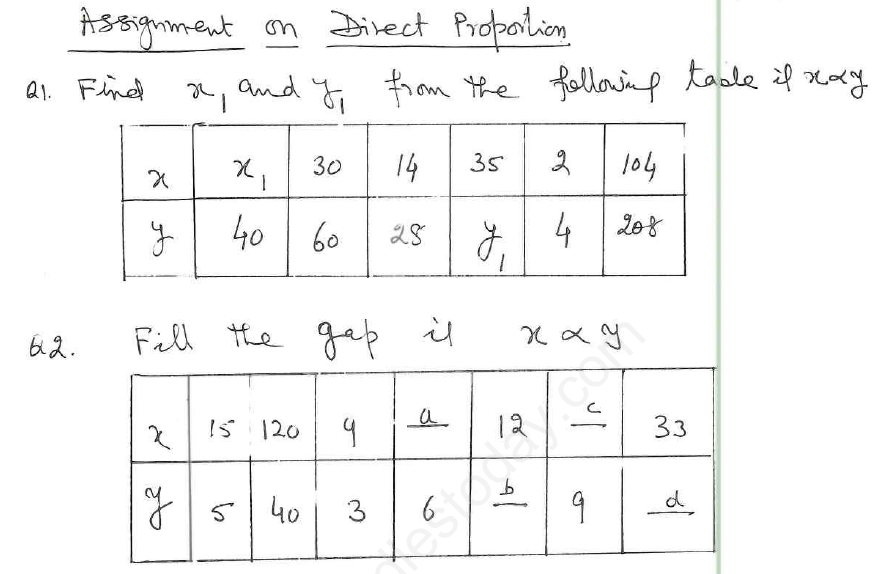 Assignment on Direct Proportion
Q1. Find x₁ and y₁ from the following table if x∝y
x x₁ 30 14 35 2 104
y 40 60 28 y₁ 4 208
Q2. Fill the gap if x ∝ y
x 15 120 9 a 12 c 33
y 5 40 3 6 b 9 d